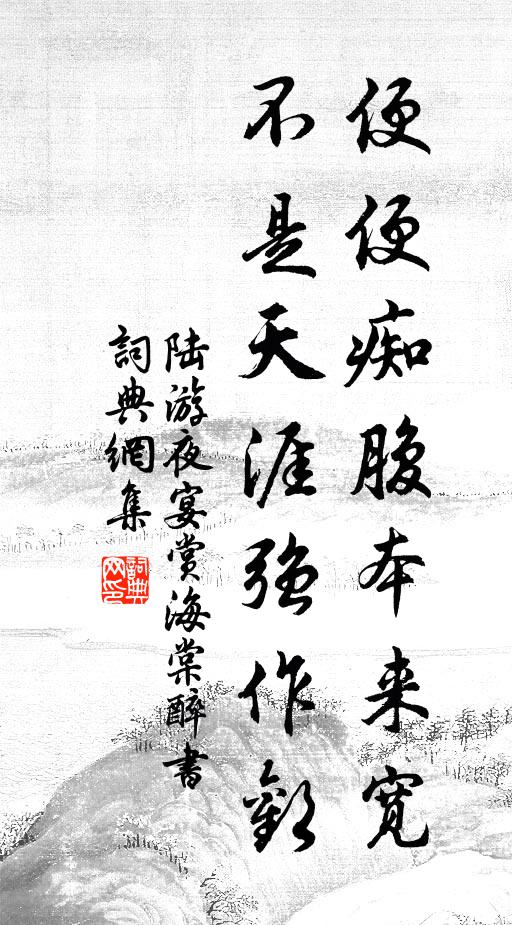 便便痴腹本来宽
不是天涯强作欢
陆游夜宴赏海棠醉书
詞典網集
詞典网印